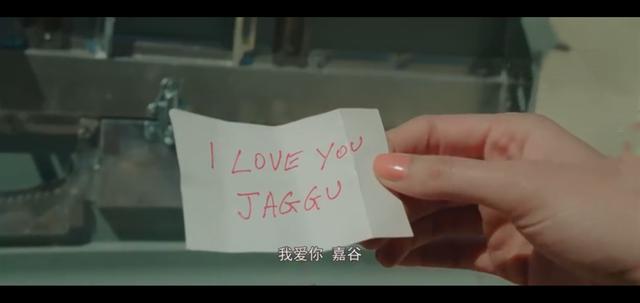 I LOVE YOU
JAGGU
我爱你 嘉谷